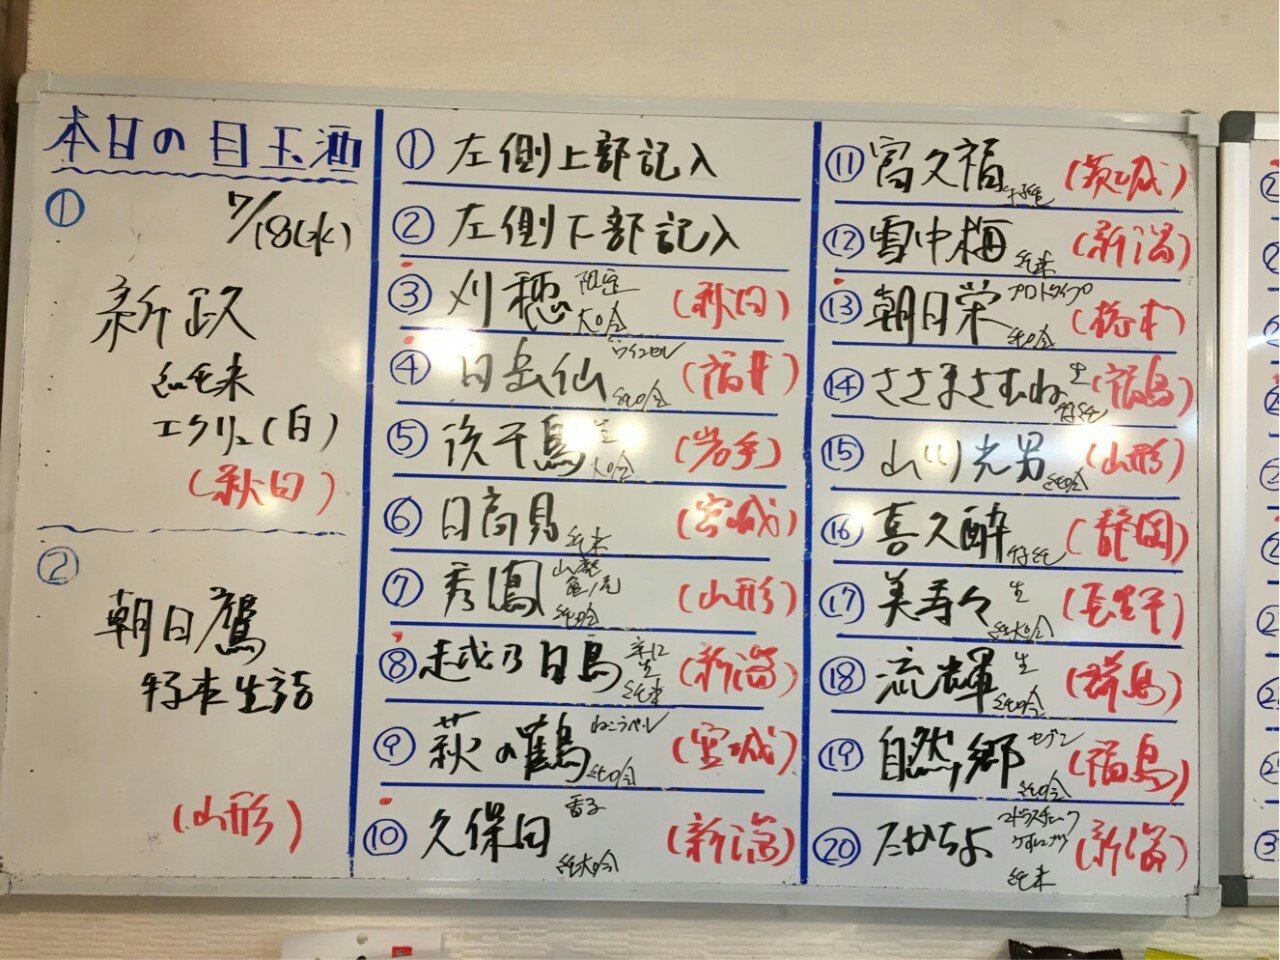 本日の目玉酒
① 7/18(水)
新政
純米
エクリュ(白)
(秋田)
②
朝日鷹
特本生詰
(山形)
① 左側上部記入
② 左側下部記入
③ 刈穂 大吟 (秋田)
④ 白岳仙 純吟 (福井)
⑤ 後千鳥 生 大吟 (岩手)
⑥ 日高見 純米 (宮城)
⑦ 秀鳳 山廃 亀ノ尾 純吟 (山形)
⑧ 越乃白鳥 辛口 生 純米 (新潟)
⑨ 萩の鶴 ねこラベル 純吟 (宮城)
⑩ 久保田 雪子 純大吟 (新潟)
⑪ 富久福 特純 (茨城)
⑫ 雪中梅 純米 (新潟)
⑬ 朝日栄 プロトタイプ 純吟 (栃木)
⑭ ささまさむね 生 特純 (福島)
⑮ 山川光男 純吟 (山形)
⑯ 喜久酔 特純 (静岡)
⑰ 美寿々 生 純大吟 (長野)
⑱ 流輝 生 純吟 (群馬)
⑲ 自然郷 セブン 純吟 (福島)
⑳ たかちよ 純米 (新潟)